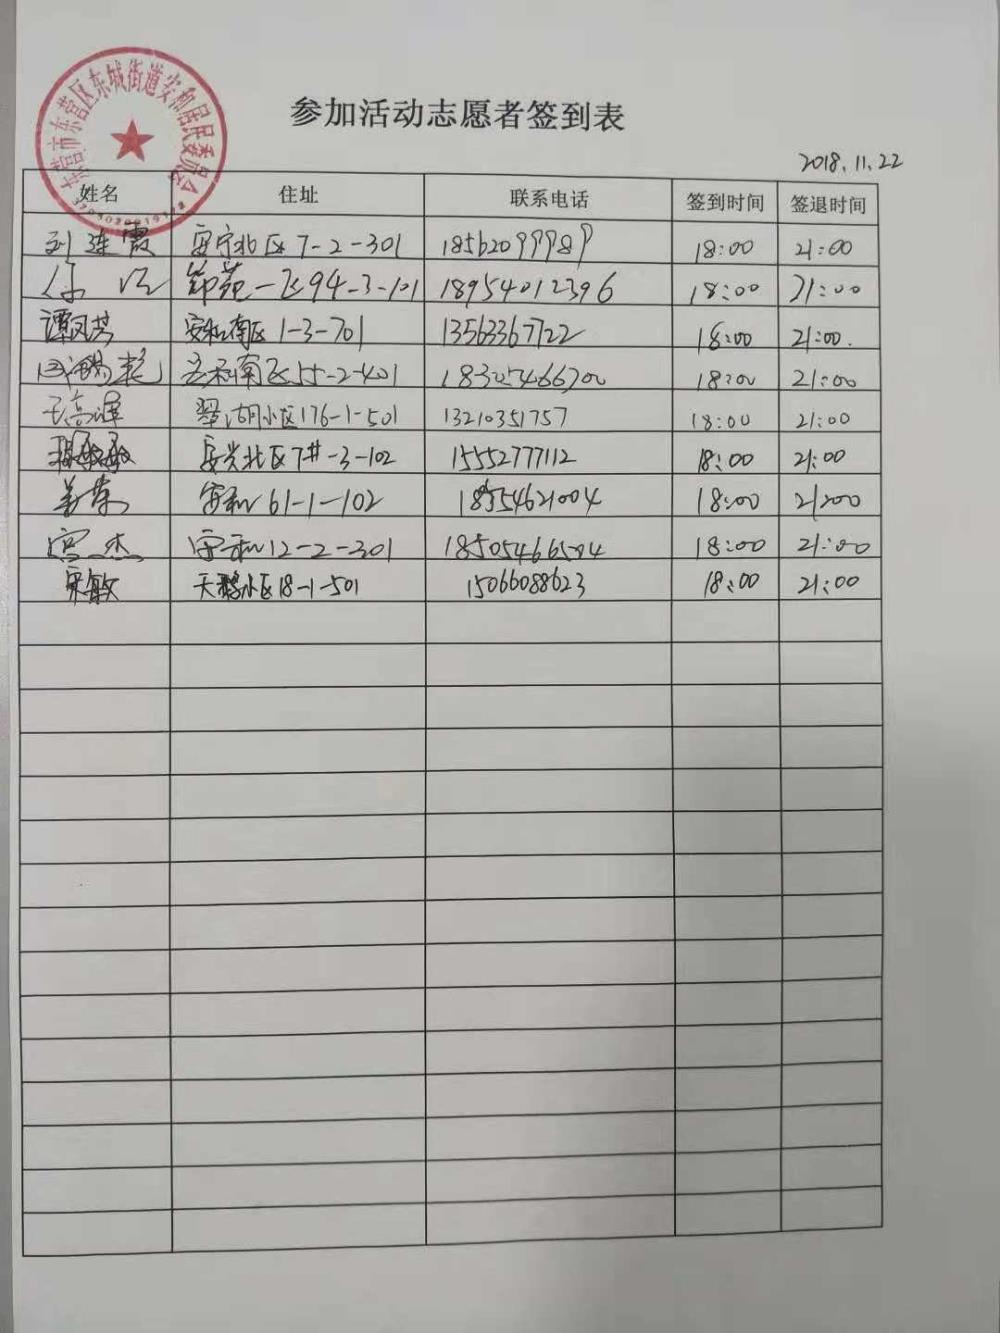 东营市东营区东城街道安和居民委员会
参加活动志愿者签到表
2018.11.22
姓名 住址 联系电话 签到时间 签退时间
刘连霞 安宁北区7-2-301 18562099989 18:00 21:00
一区94-3-101 18954012396 18:00 21:00
谭凤芳 安和南区1-3-701 13563367722 18:00 21:00.
南区55-2-401 18:00 21:00
翠湖小区176-1-501 13210351757 18:00 21:00
安兴北区7#-3-102 15552777112 18:00 21:00
姜荣 安和61-1-102 18554621004 18:00 21:00
宫杰 安和12-2-301 18:00 21:00
宋敏 天鹅小区18-1-501 15066088623 18:00 21:00